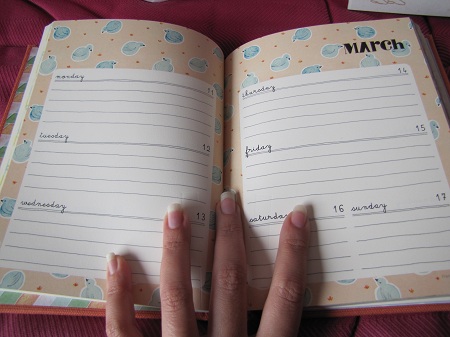 MArch
monday 11
tuesday 12
wednesday 13
thursday 14
friday 15
saturday 16
sunday 17